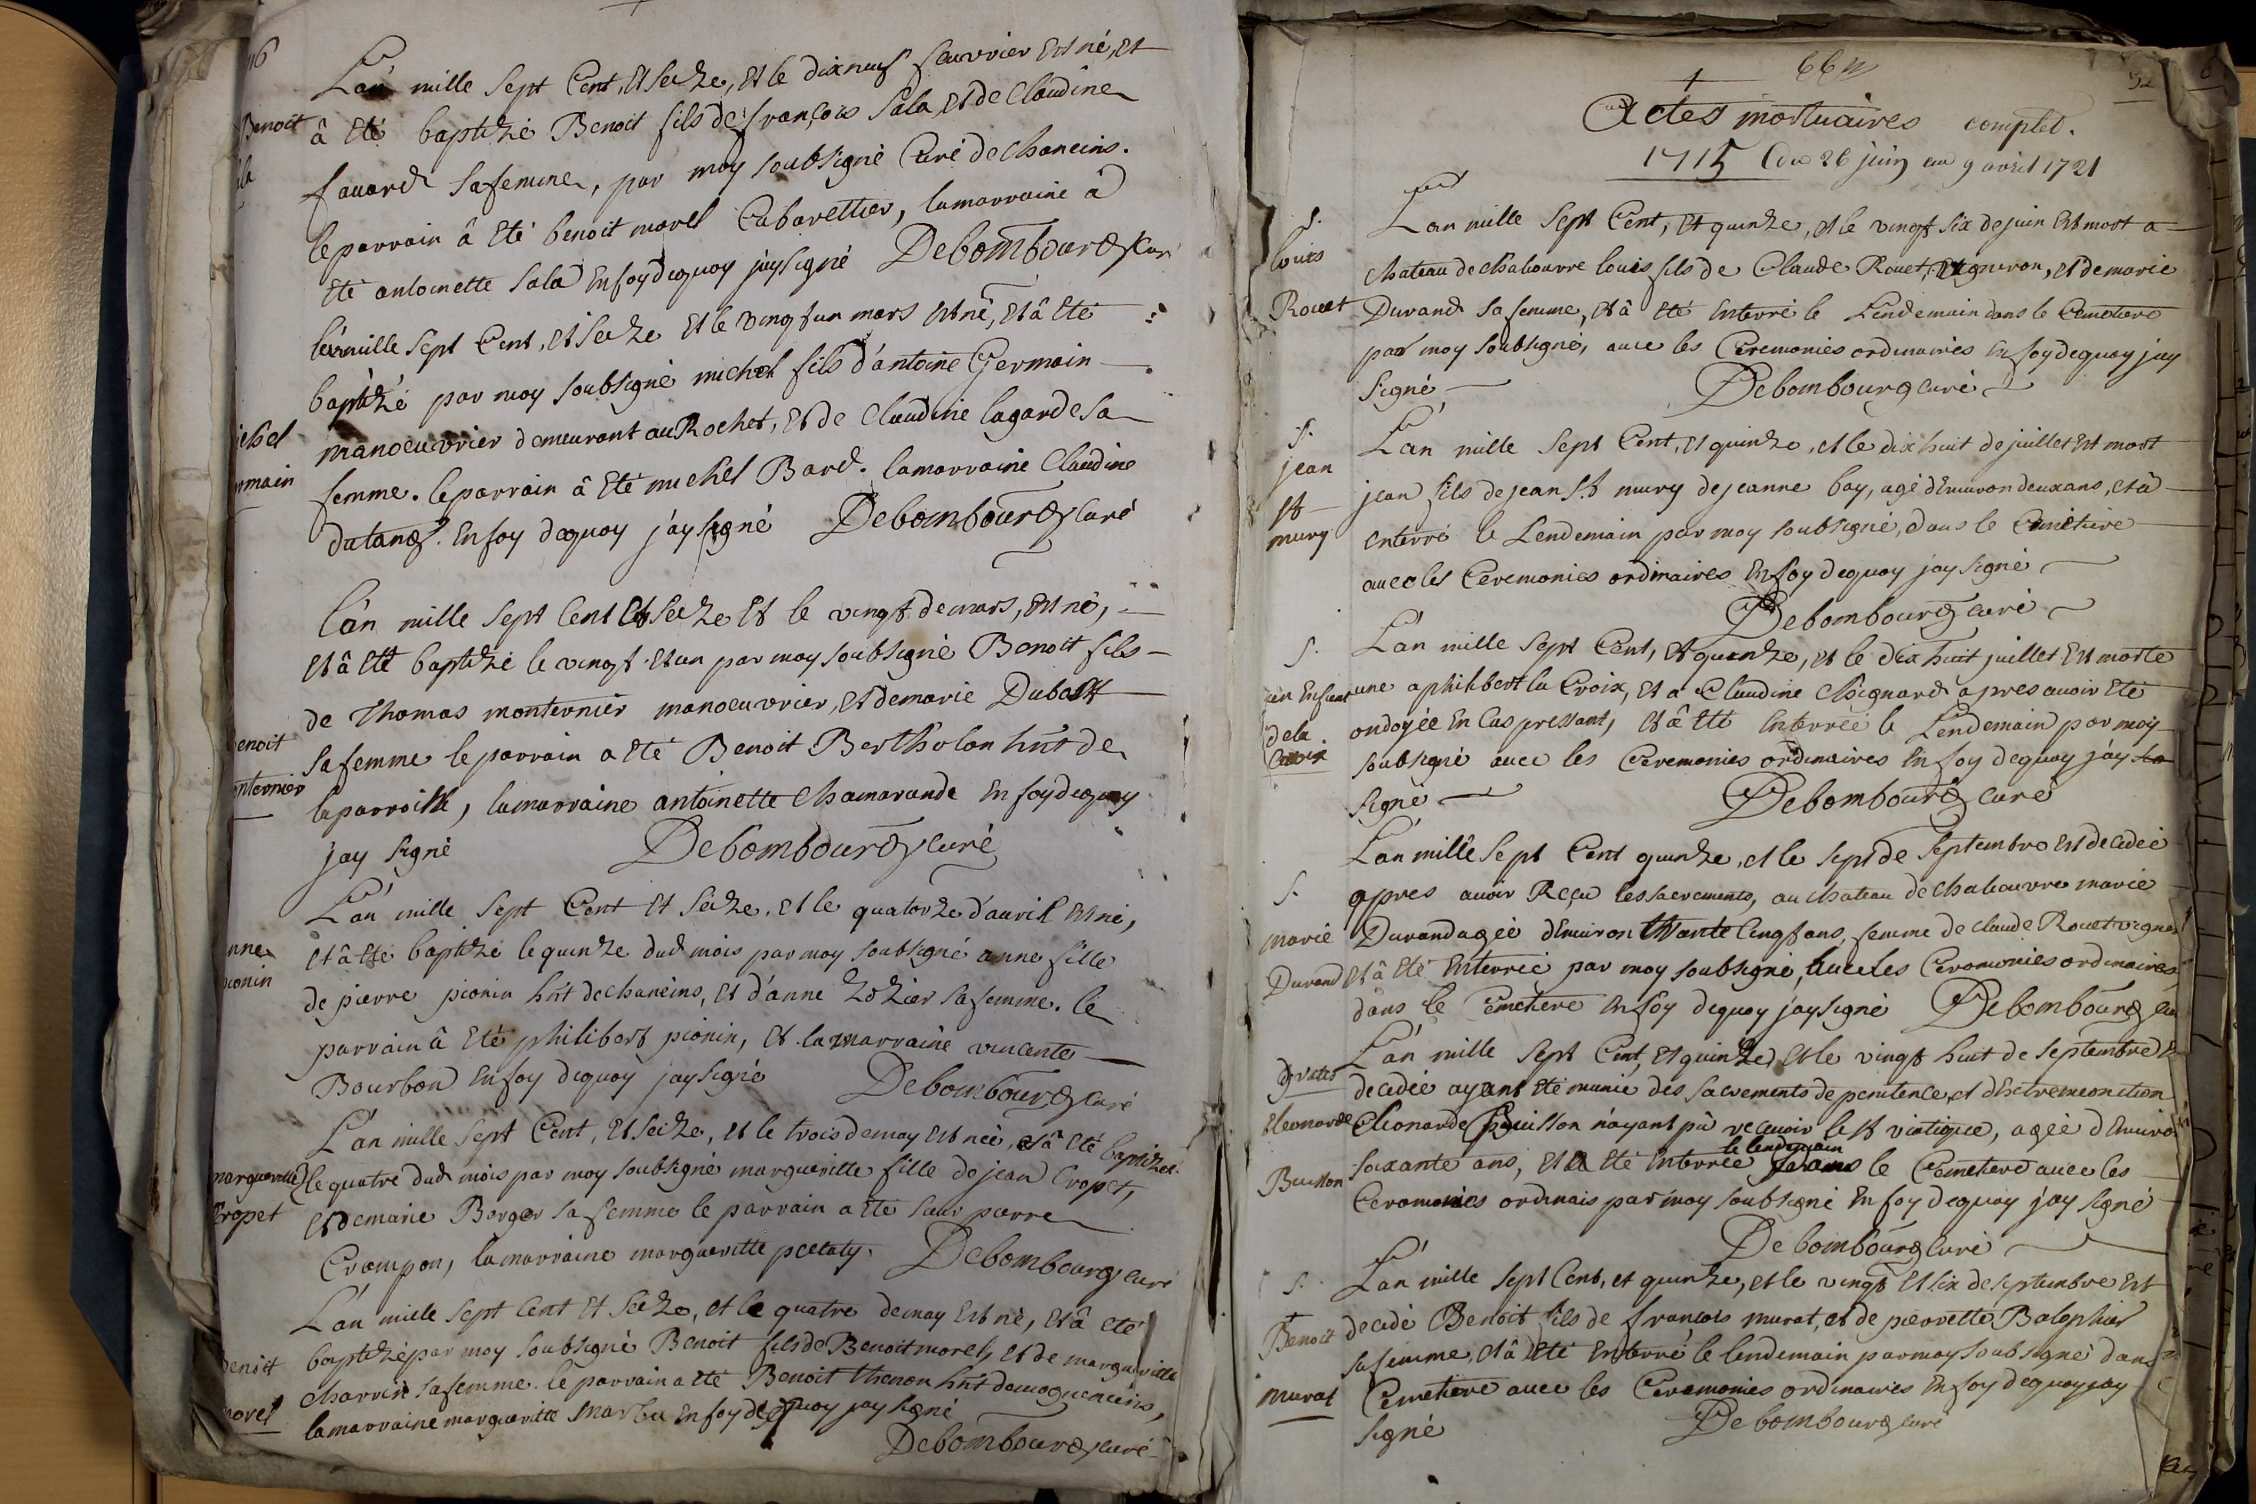 16
L'an mille sept Cent, et seize, et le dixneuf feuvrier est né, et
Benoit
à été baptizé Benoit fils de françois Sala, et de Claudine
la
favard sa femme, par moy soubsigné Curé de chaneins.
le parrain à été benoit morel Cabarettier, la marraine à
été antoinette Sala en foy dequoy j'ay signé Debombourg Curé
l'an mille sept Cent, et seize et le vingt un mars est né, et à été
baptizé par moy soubsigné michel fils d'antoine Germain
ichel
manoeuvrier demeurant au Rochet, et de Claudine lagarde sa
rmain
femme. le parrain à été michel Bard. la marraine Claudine
en foy dequoy j'ay signé Debombourg Curé
L'an mille sept Cent et seize et le vingt de mars, est né,
et à été baptizé le vingt et un par moy soubsigné Benoit fils
de Thomas monternier manoeuvrier, et de marie Dubost
enoit
sa femme le parrain a été Benoit Bertholon hnt de
onternier
la parroisse, la marraine antoinette Chamarande en foy dequoy
jay signé Debombourg Curé
L'an mille sept Cent et seize, et le quatorze d'auril est né,
nne
et à été baptizé le quinze dud mois par moy soubsigné anne fille
pionin
de pierre pionin hnt de chaneins, et d'anne Lozier sa femme. le
parrain à été philibert pionin, et la marraine vincente
Bourbon en foy dequoy jay signé Debombourg Curé
L'an mille sept Cent, et seize, et le trois de may est née, et à été baptizée
margueritte
le quatre dud mois par moy soubsigné margueritte fille de jean Cropet,
Cropet
et de marie Berger sa femme le parrain a été sieur pierre
Crompon, la marraine margueritte Debombourg Curé
L'an mille sept Cent et seize, et le quatre de may est né, et à été
benoit
baptizé par moy soubsigné Benoit fils de Benoit morel, et de margueritte
morel
charvin sa femme. le parrain a été Benoit thenon hnt de mogneneins,
la marraine margueritte en foy dequoy jay signé
Debombourg Curé
664
52
Actes mortuaires complet.
1715 Du 26 juin au 9 avril 1721
S.
L'an mille sept Cent, et quinze, et le vingt six de juin est mort a
louis
chateau de chaliouvre louis fils de Claude Rouet, vigneron, et de marie
Rouet
Durand sa femme, et à été enterré le Lendemain dans le Cemetiere
par moy soubsigné, avec les Ceremonies ordinaires en foy dequoy jay
signé Debombourg curé
S.
L'an mille sept Cent, et quinze, et le dix huit de juillet est mort
jean
jean fils de jean St mury de jeanne bay, agé d'environ deux ans, et à
St
mury
enterré le Lendemain par moy soubsigné, dans le Cemetiere
avec les Ceremonies ordinaires en foy dequoy jay signé
Debombourg curé
S.
L'an mille sept Cent, et quinze, et le dix huit juillet est morte
un Enfant
une a philibert la Croix, et a Claudine Chignard apres avoir été
dela
ondoyée en Cas pressant, et à été enterrée le Lendemain par moy
Croix
soubsigné avec les Ceremonies ordinaires en foy dequoy j'ay
signé Debombourg curé
L'an mille sept Cent quinze, et le sept de septembre est decedée
S.
apres avoir Reçu les sacrements, au chateau de chaliouvre marie
marie
Durand agée d'environ trante Cinq ans, femme de Claude Rouet vigner
Durand
et à été enterrée par moy soubsigné, avec les Ceremonies ordinaires
dans le Cemetiere en foy dequoy jay signé Debombourg cu
L'an mille sept Cent, et quinze, et le vingt huit de septembre
decedée ayant été munie des sacrements de penitence, et d'extremeonction
Eleonarde
Eleonarde Buisson n'ayant pû recevoir le St viatique, agée d'enviro
le lendemain
Buisson
soixante ans, et a été enterrée dans le Cemetiere avec les
Ceremonies ordinais par moy soubsigné en foy dequoy jay signé
Debombourg Curé
S.
L'an mille sept Cent, et quinze, et le vingt et six de septembre est
Benoit
decedé Benoit fils de francois murat, et de pierrette
sa femme, et à été enterré le lendemain par moy soubsigné dans
murat
Cemetiere avec les Ceremonies ordinaires en foy dequoy jay
signé Debombourg curé